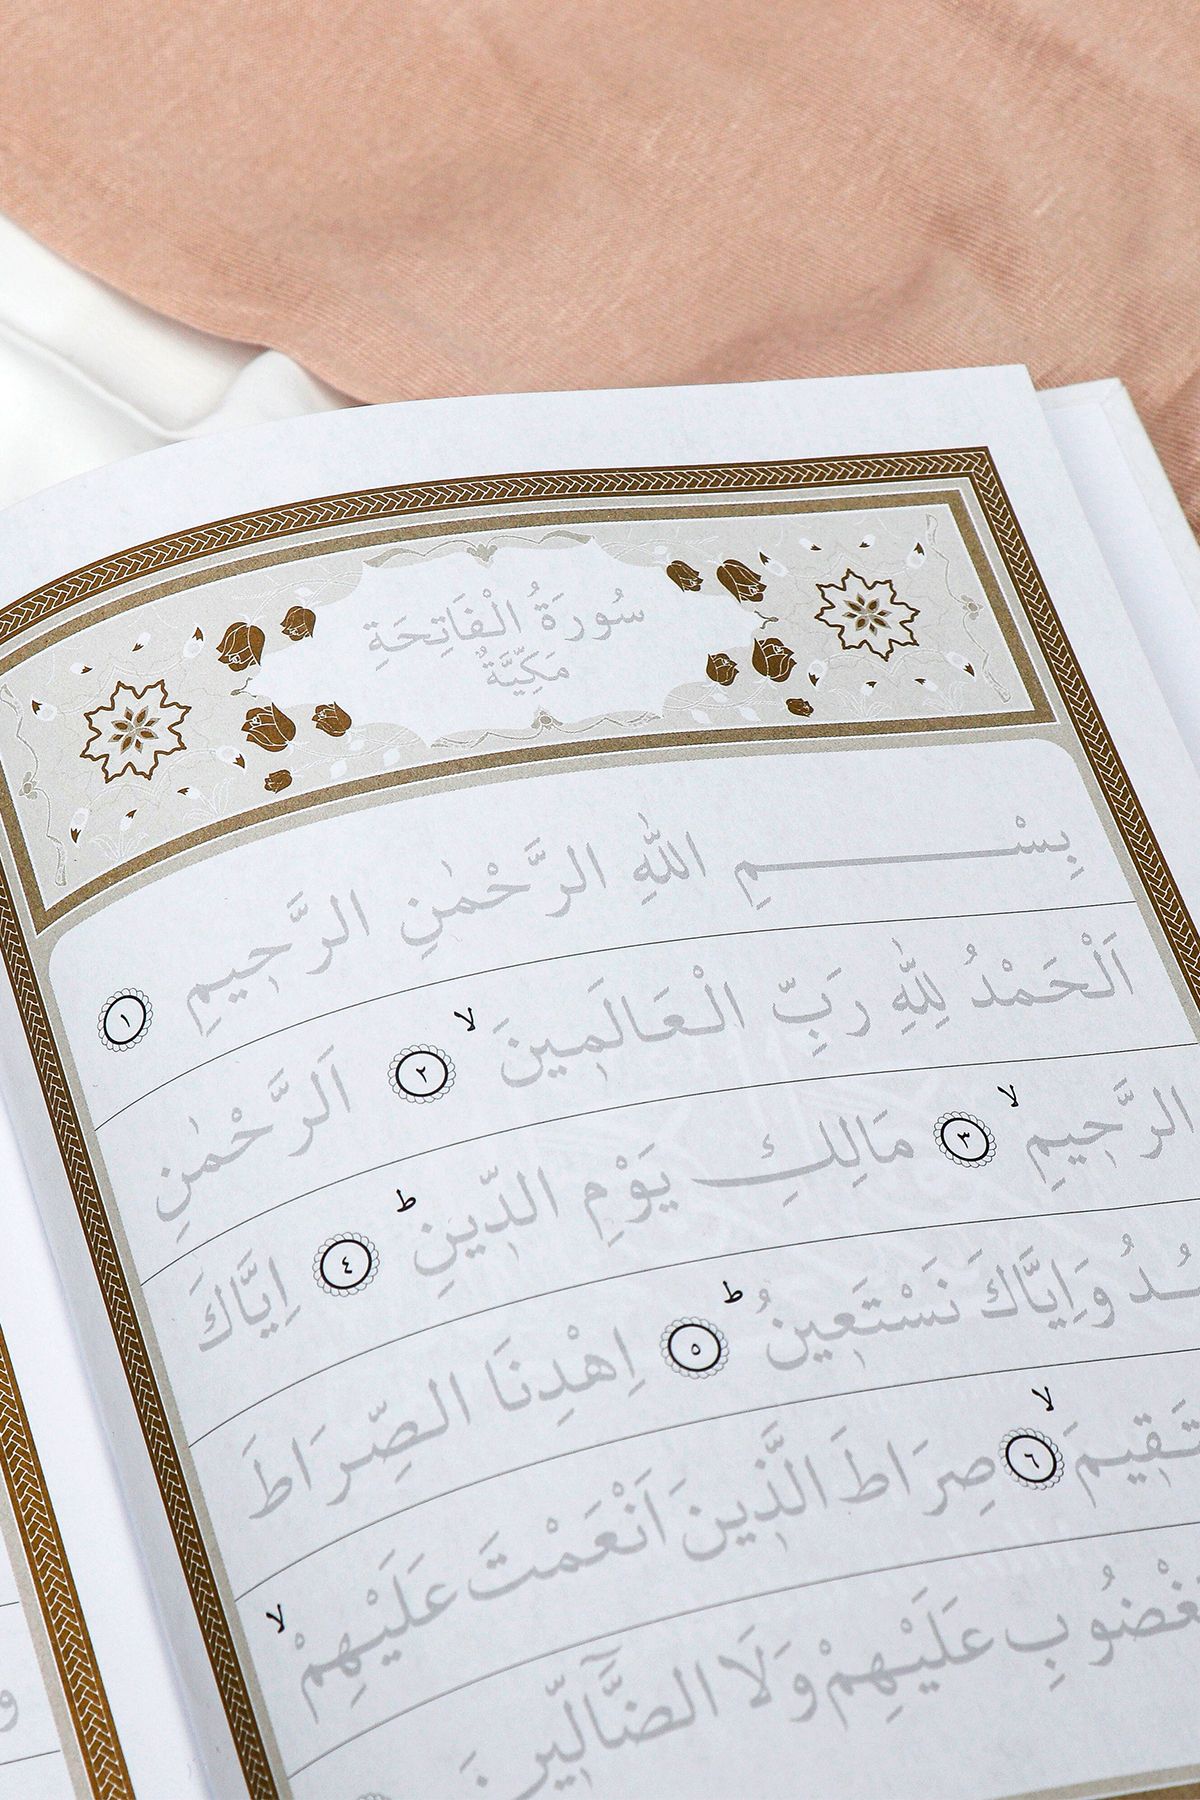 سُورَةُ الْفَاتِحَةِ
مَكِّيَّةٌ
بِسْــــــــمِ اللّٰهِ الرَّحْمٰنِ الرَّحِيمِ ﴿١﴾
اَلْحَمْدُ لِلّٰهِ رَبِّ الْعَالَمِينَ ۙ ﴿٢﴾ اَلرَّحْمٰنِ
الرَّحِيمِ ۙ ﴿٣﴾ مَالِكِ يَوْمِ الدِّينِ ۜط ﴿٤﴾ اِيَّاكَ
ـبُدُ وَاِيَّاكَ نَسْتَعِينُ ط ﴿٥﴾ اِهْدِنَا الصِّرَاطَ
ـتَقِيمَ ۙ ﴿٦﴾ صِرَاطَ الَّذِينَ اَنْعَمْتَ عَلَيْهِمْ ۙ
ـغْضُوبِ عَلَيْهِمْ وَلَا الضَّٓالِّينَ